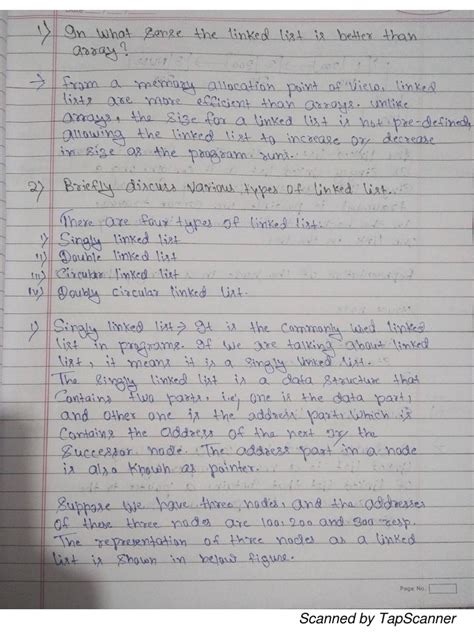 1) In what sense the linked list is better than
array?
→ From a memory allocation point of view, linked
lists are more efficient than arrays. Unlike
arrays, the size for a linked list is not pre-defined,
allowing the linked list to increase or decrease
in size as the program runs.
2) Briefly discuss various types of linked list.
There are four types of linked list.
i) Singly linked list
ii) Double linked list
iii) Circular linked list
iv) Doubly circular linked list.
1) Singly linked list → It is the commonly used linked
list in programs. If we are talking about linked
list, it means it is a singly linked list.
The singly linked list is a data structure that
contains two parts, i.e, one is the data part,
and other one is the address part, which is
contains the address of the next or the
successor node. The address part in a node
is also known as pointer.
Suppose we have three nodes, and the addresses
of these three nodes are 100, 200 and 300 resp.
The representation of three nodes as a linked
list is shown in below figure.
Page No.
Scanned by TapScanner